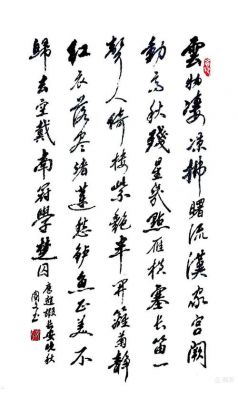 雲物凄凉拂曙流漢家宮闕
動高秋殘星幾點雁橫塞長笛一
聲人倚樓紫艷半開籬菊靜
紅衣落盡渚蓮愁鱸魚正美不
歸去空戴南冠學楚囚
唐趙嘏長安晚秋